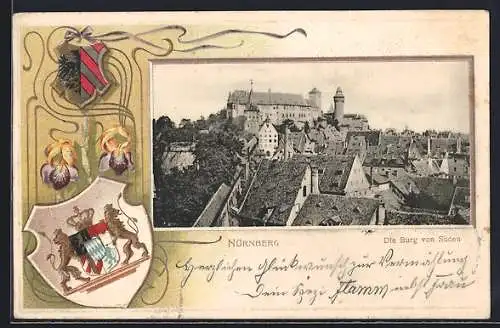 NÜRNBERG
Die Burg von Süden
Herzlichen Glückwunsch zur Vermählung
Dein Spezi Stamm nebst Frau